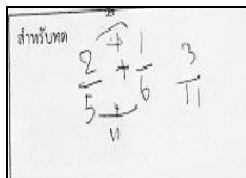 สำหรับทด
2/5 + 1/6 3/11